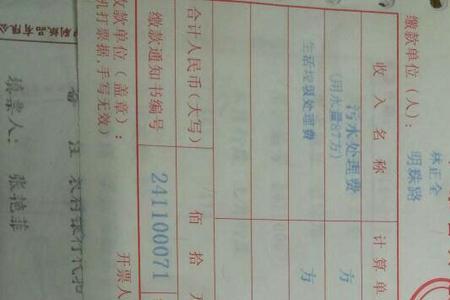 缴款单位(人):
林正全
明珠路
收入名称
计算单
污水处理费
(用水量87方)
方
生活垃圾处理费
方
合计人民币(大写)
佰拾
缴款通知书编号
241100071
收款单位(盖章):
开票人
机打票据,手写无效)
填票人:张艳菲